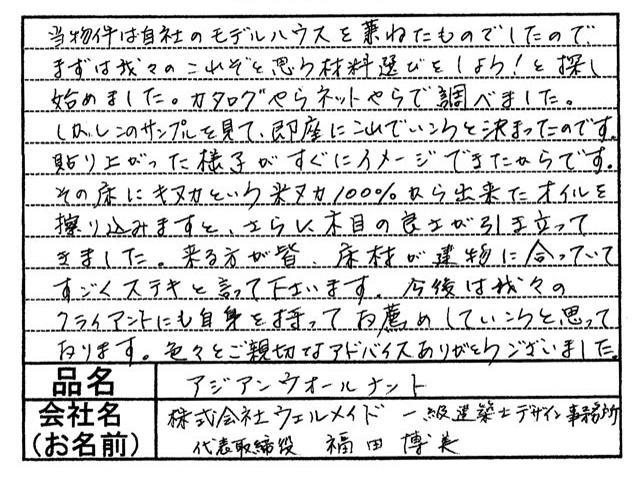 当物件は自社のモデルハウスを兼ねたものでしたので、
まずは我々のこれぞと思う材料選びをしよう!と探し
始めました。カタログやらネットやらで調べました。
しかしこのサンプルを見て、即座にこれでいこうと決まったのです。
貼り上がった様子がすぐにイメージできたからです。
その床にキヌカという米ヌカ100%から出来たオイルを
擦り込みますと、さらに木目の良さが引き立って
きました。来る方が皆、床材が建物に合っていて
すごくステキと言って下さいます。今後は我々の
クライアントにも自身を持ってお薦めしていこうと思って
おります。色々とご親切なアドバイスありがとうございました。
品名 アジアンウォールナット
会社名 株式会社ウェルメイド 一級建築士デザイン事務所
(お名前) 代表取締役 福田 博美